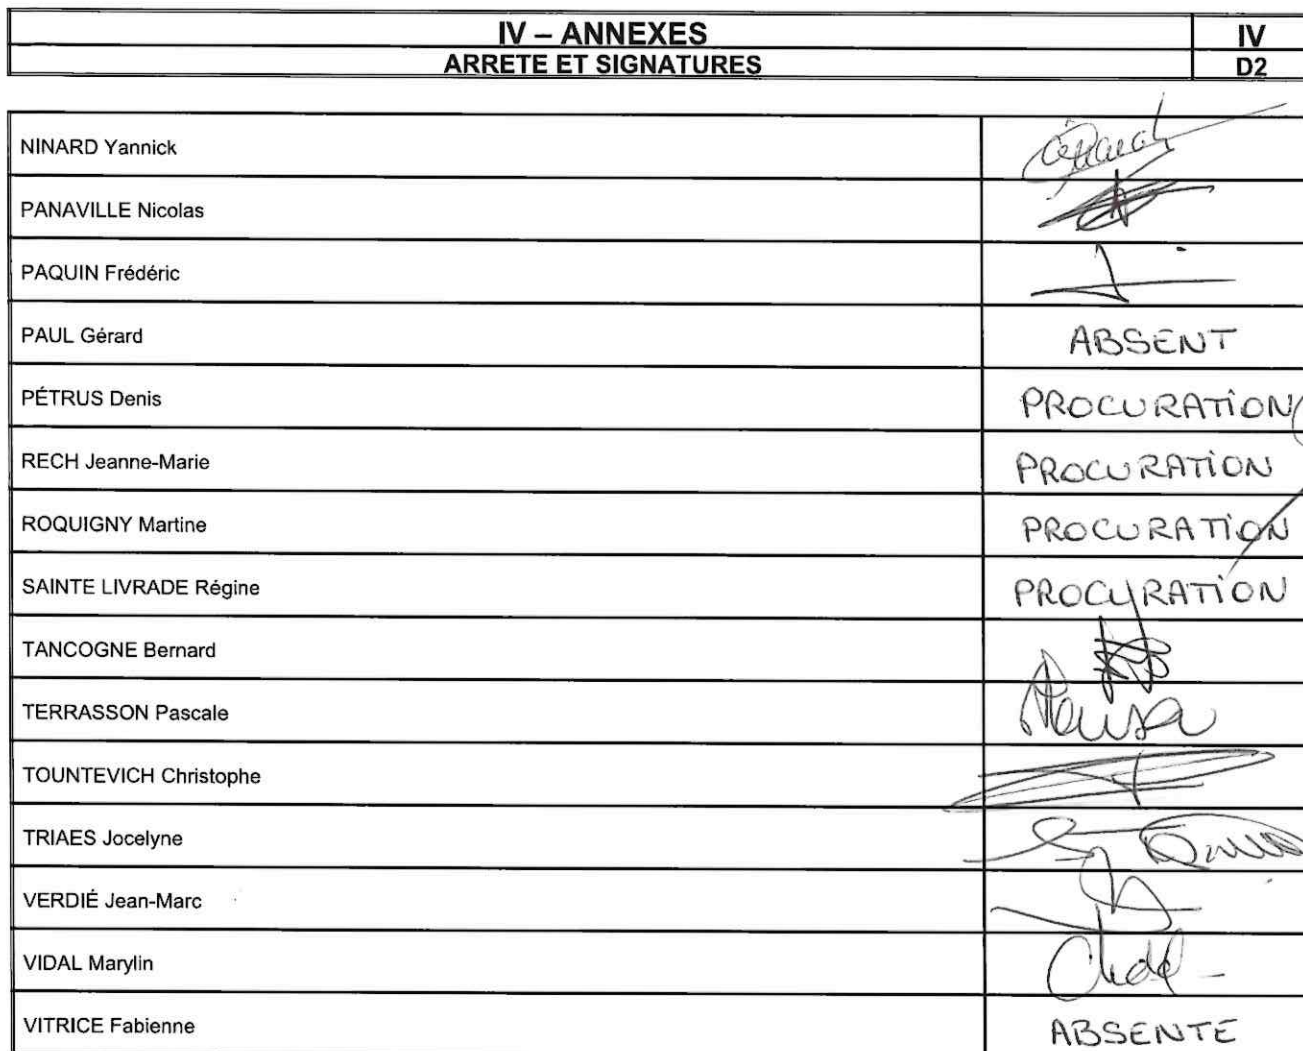 IV – ANNEXES
IV
ARRETE ET SIGNATURES
D2
NINARD Yannick
PANAVILLE Nicolas
PAQUIN Frédéric
PAUL Gérard
ABSENT
PÉTRUS Denis
PROCURATION
RECH Jeanne-Marie
PROCURATION
ROQUIGNY Martine
PROCURATION
SAINTE LIVRADE Régine
PROCURATION
TANCOGNE Bernard
TERRASSON Pascale
TOUNTEVICH Christophe
TRIAES Jocelyne
VERDIÉ Jean-Marc
VIDAL Marylin
VITRICE Fabienne
ABSENTE